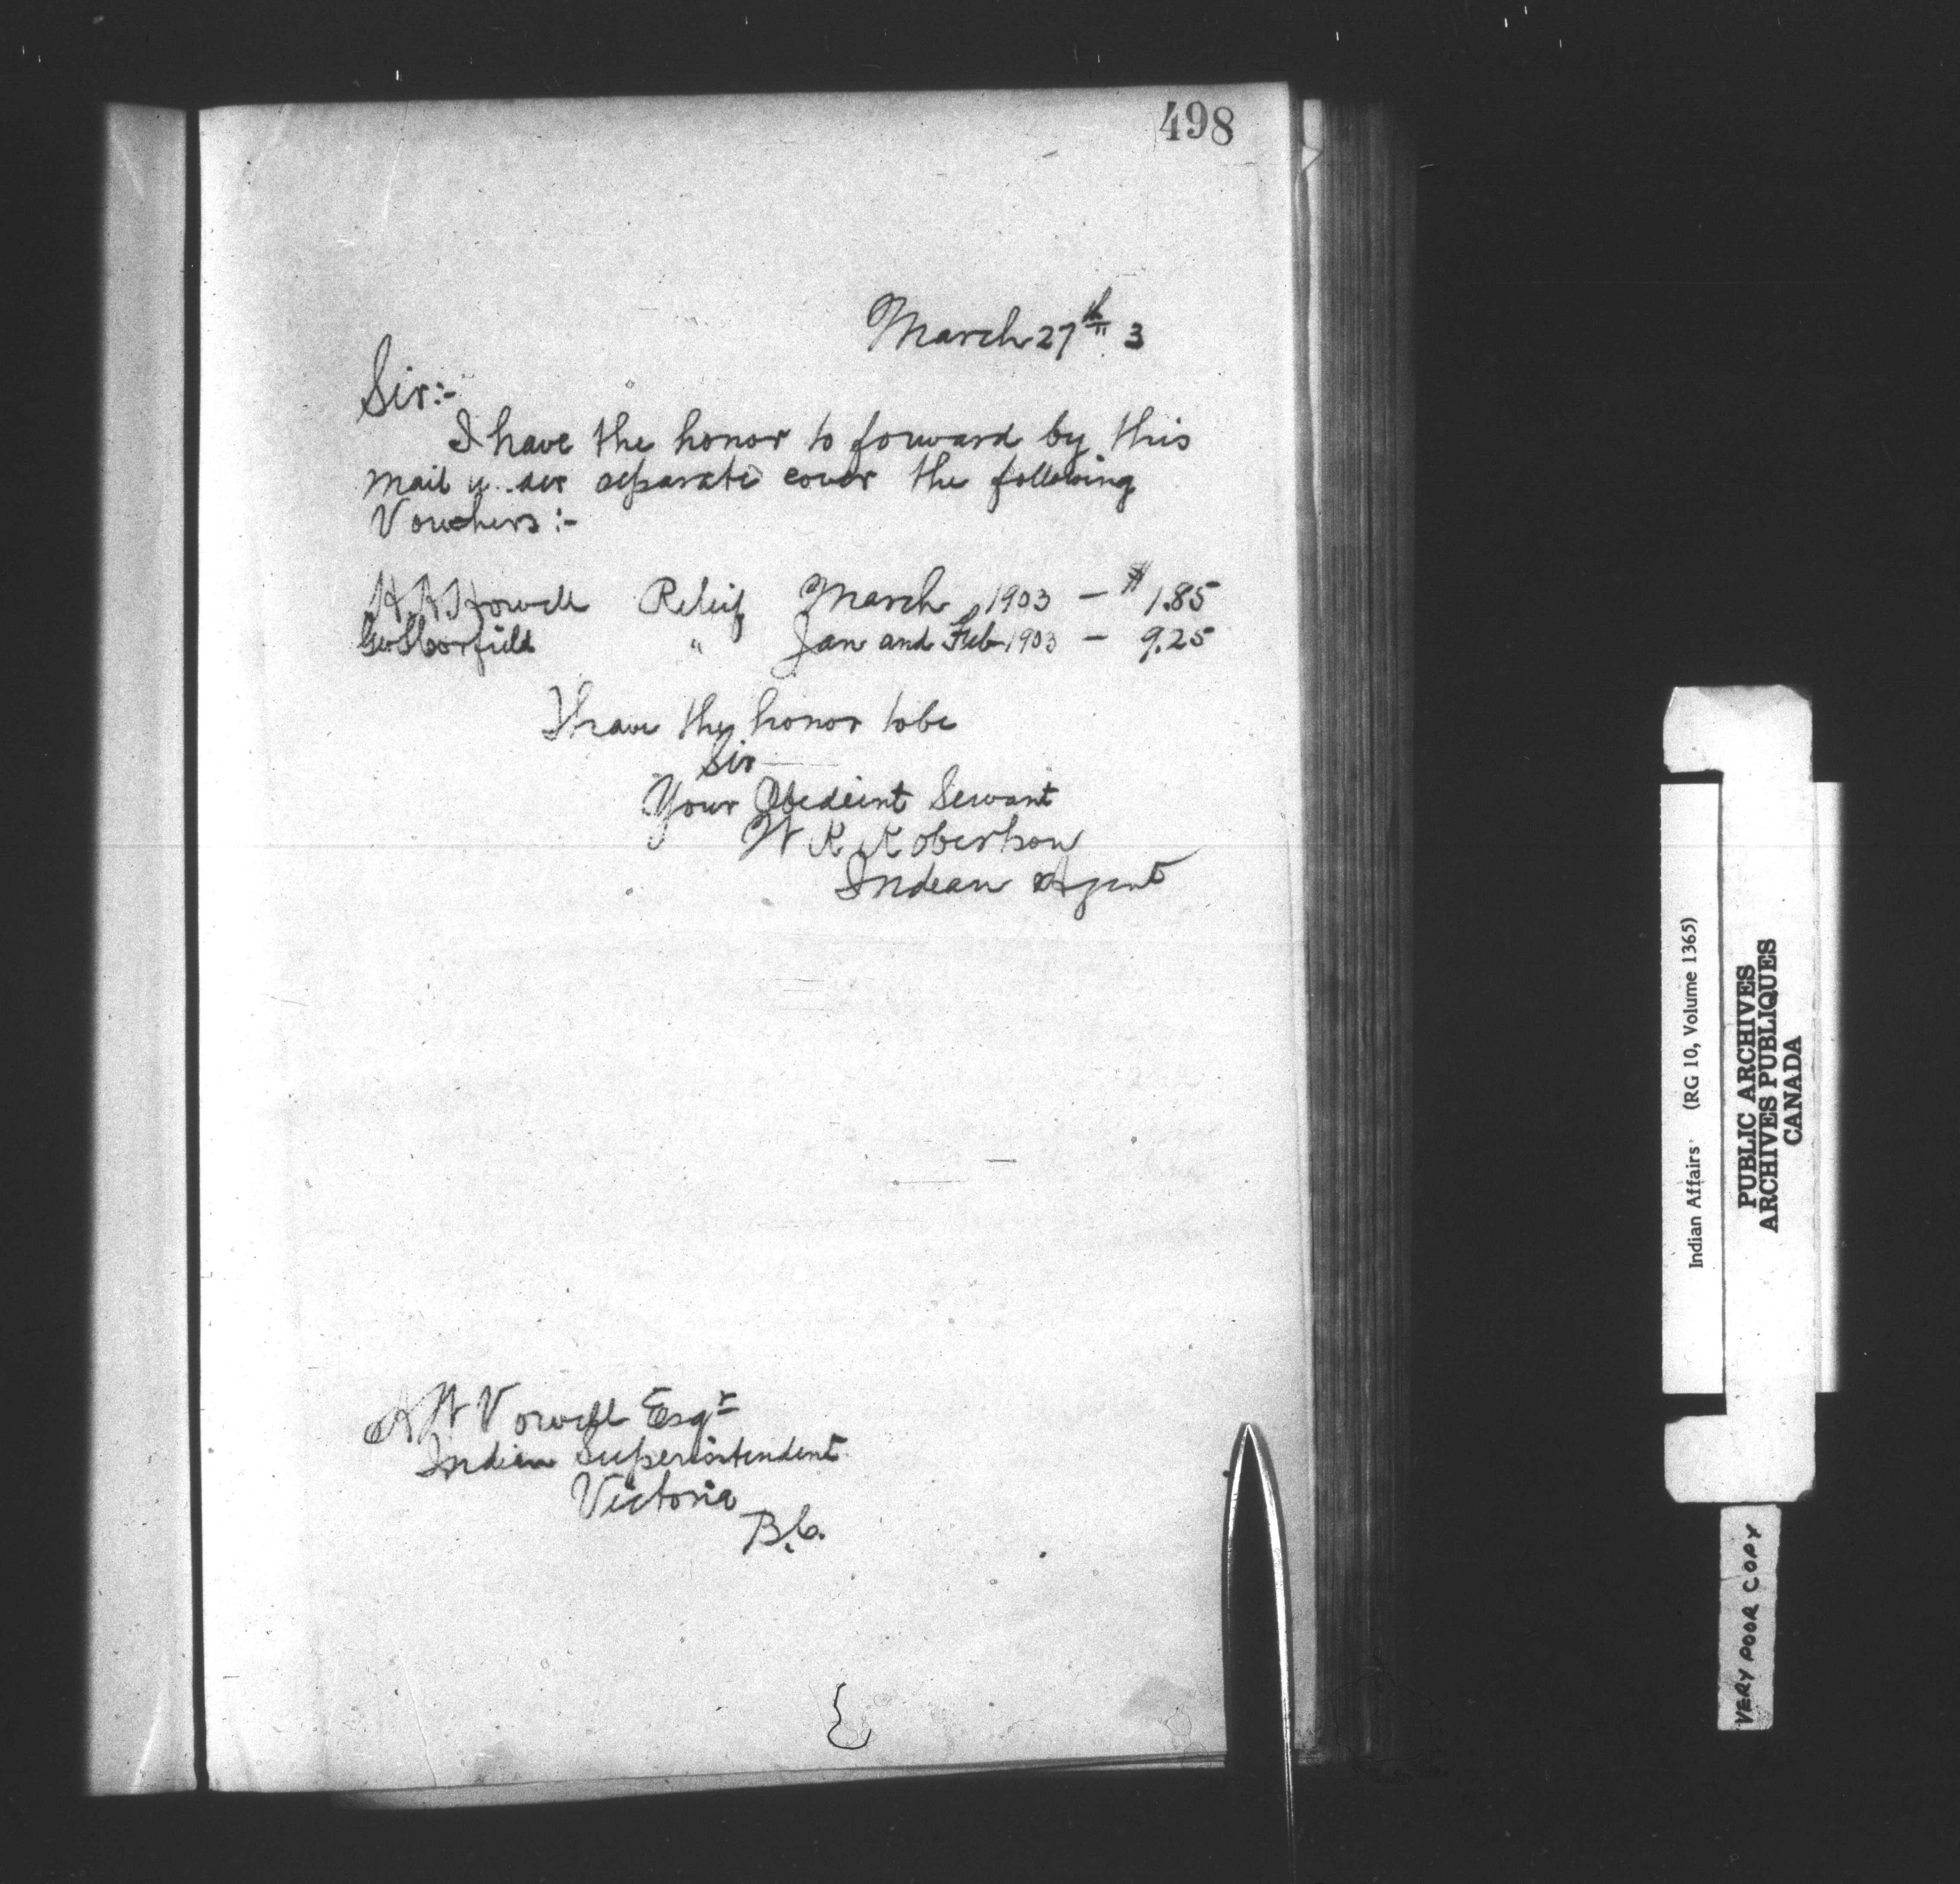 498
March 27th 3
Sir:-
I have the honor to forward by this
mail separate cover the following
Vouchers:-
Howell Relief March 1903 - $1.85
" Jan and Feb 1903 - 9.25
I have the honor to be
Sir
Your Obedient Servant
W R Robertson
Indian Agent
A W Vowell Esqr
Indian Superintendent
Victoria
B.C.
Indian Affairs (RG 10, Volume 1365)
PUBLIC ARCHIVES
ARCHIVES PUBLIQUES
CANADA
VERY POOR COPY